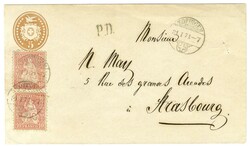 P.D.
Monsieur
N. May
5 Rue des grandes Arcades
à
Strasbourg.